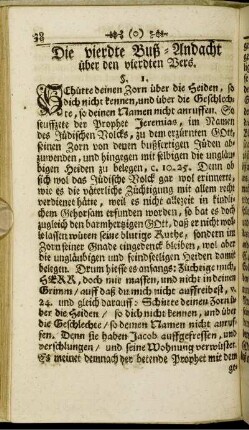 38 (0)
Die vierdte Buß-Andacht
über den vierdten Vers.
§. 1.
SChütte deinen Zorn über die Heiden, so
dich nicht kennen, und über die Geschlech-
te, so deinen Namen nicht anruffen. So
seuffzet der Prophet Jeremias, im Namen
des Jüdischen Volcks, zu dem erzürnten GOtt,
seinen Zorn von denen bußfertigen Jüden ab-
zuwenden, und hingegen mit selbigen die ungläu-
bigen Heiden zu belegen, c. 10. 25. Denn ob
sich wol das Jüdische Volck gar wol erinnerte,
wie es die väterliche Züchtigung mit allem recht
verdienet hätte, weil es nicht allezeit in kindli-
chem Gehorsam erfunden worden, so bat es doch
zugleich den barmhertzigen GOtt, daß er nicht wol-
le lassen währen seine blutige Ruthe, sondern im
Zorn seiner Gnade eingedenck bleiben, wol aber
die ungläubigen und feindseeligen Heiden damit
belegen. Drum hiesse es anfangs: Züchtige mich,
HErr, doch mit massen, und nicht in deinem
Grimm, auff daß du mich nicht auffreibest, v.
24. und gleich darauff: Schütte deinen Zorn ü-
ber die Heiden / so dich nicht kennen, und über
die Geschlechte / so deinen Namen nicht anruf-
fen. Denn sie haben Jacob auffgefressen, und
verschlungen / und seine Wohnung verwüstet.
Es meinet demnach der betende Prophet mit dem
ge-